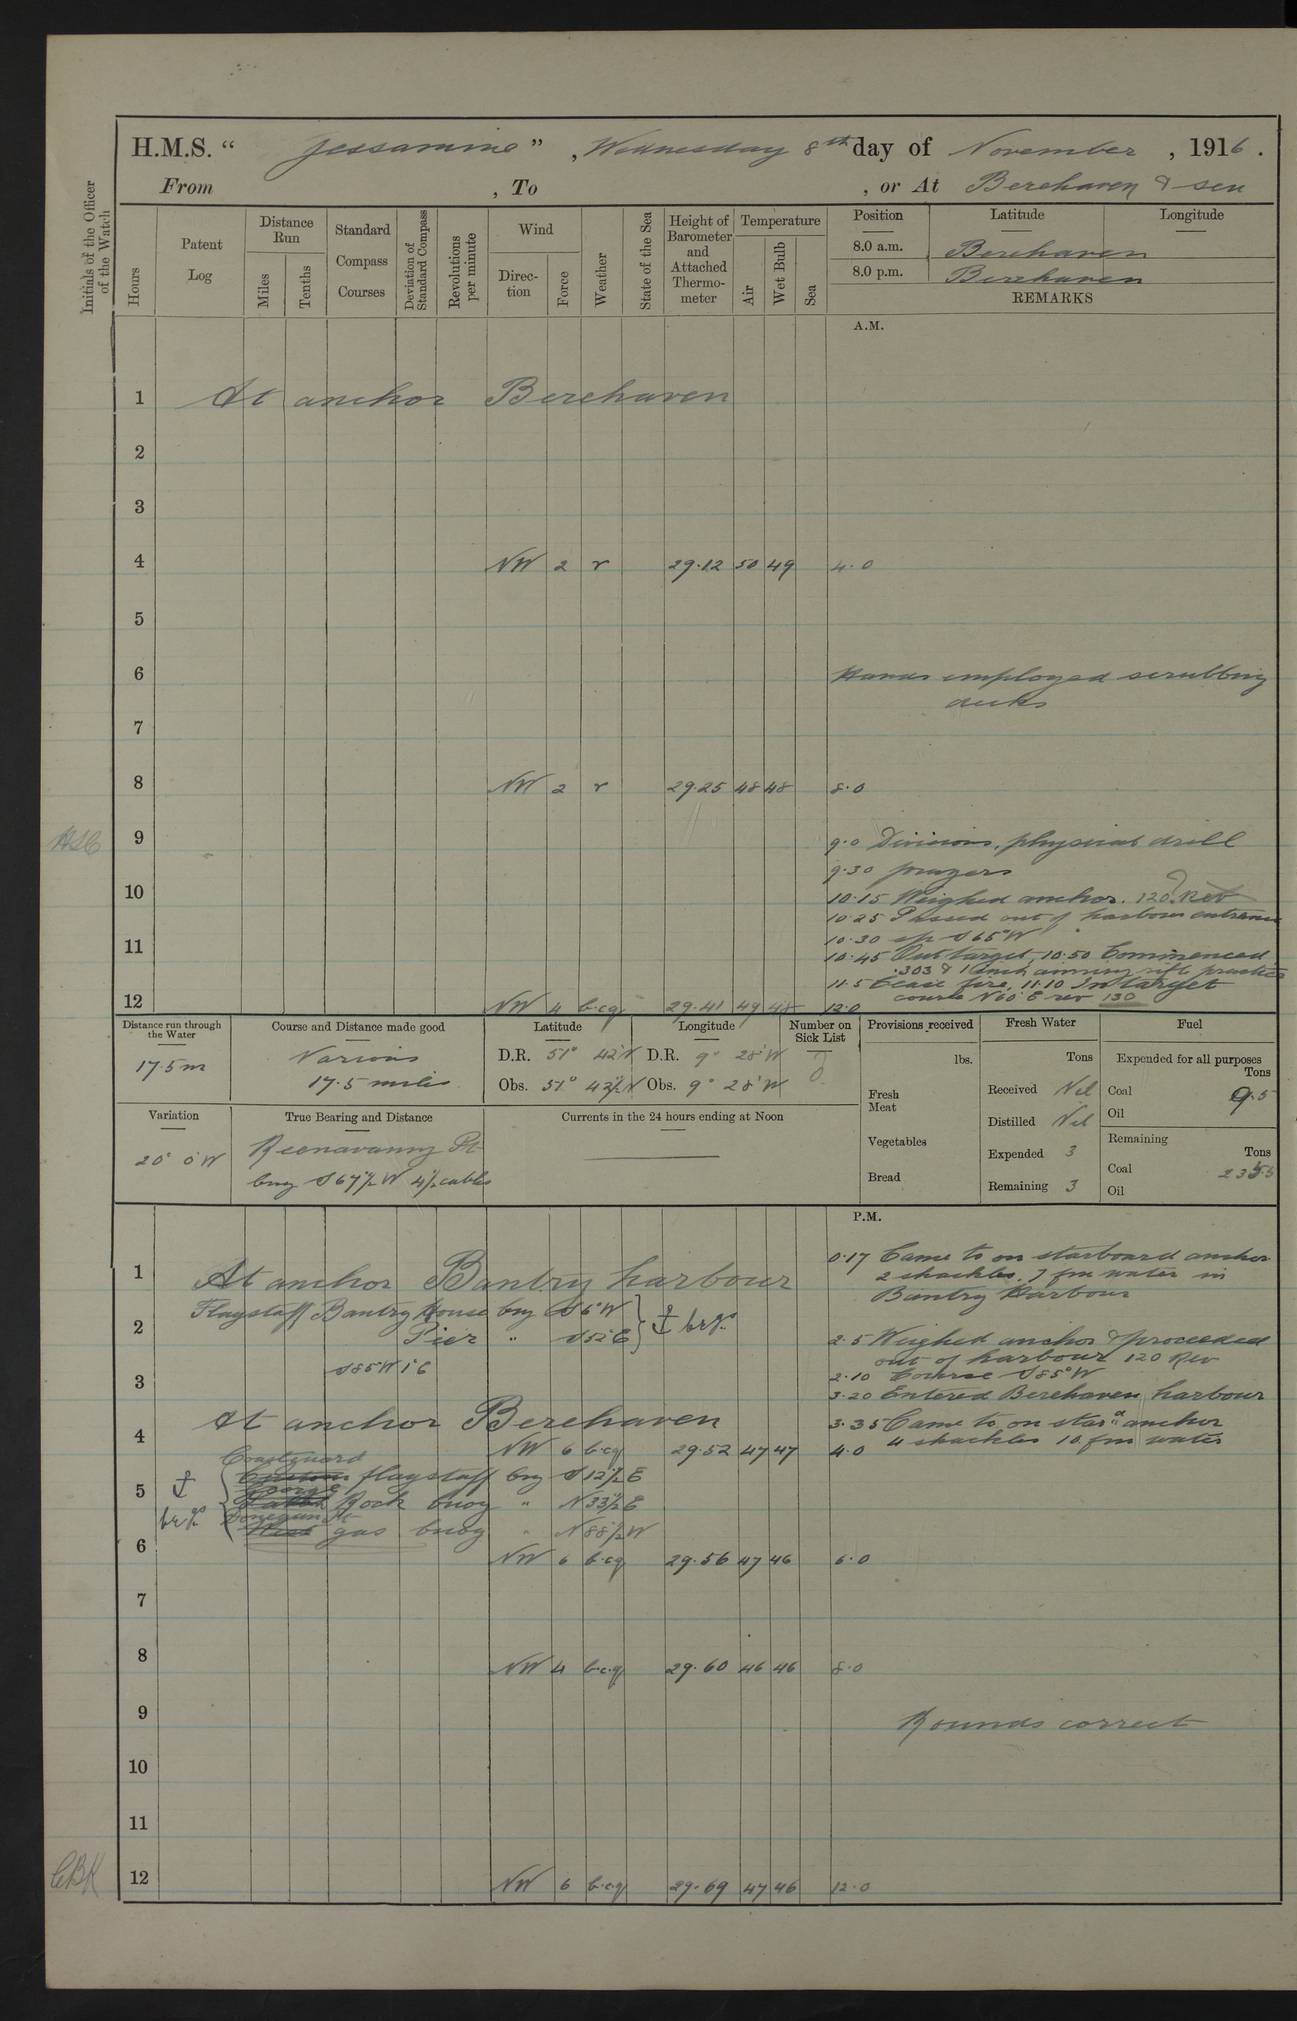 H.M.S. " Jessamine ", Wednesday 8th day of November, 1916.
From , To , or At Berehaven & sea
Initials of the Officer of the Watch
Hours
Patent Log
Distance Run
Miles
Tenths
Standard Compass Courses
Deviation of Standard Compass
Revolutions per minute
Wind
Direction
Force
Weather
State of the Sea
Height of Barometer and Attached Thermometer
Temperature
Air
Wet Bulb
Sea
Position Latitude Longitude
8.0 a.m. Berehaven
8.0 p.m. Berehaven
REMARKS
A.M.
1 At anchor Berehaven
2
3
4 NW 2 r 29.12 50 49 4.0
5
6 Hands employed scrubbing
decks
7
8 NW 2 r 29.25 48 48 8.0
9 9.0 Divisions, physical drill
9.30 prayers
10 10.15 Weighed anchor. 120 Rev
10.25 Passed out of harbour entrance
10.30 S 65° W
11 10.45 Out target, 10.50 Commenced
.303 & 1 inch aiming rifle practice
11.5 Cease fire, 11.10 In target
course N 60° E rev 130
12 NW 4 b.c.q 29.41 49 48 12.0
Distance run through the Water
17.5 m
Course and Distance made good
Various
17.5 miles
Latitude
D.R. 51° 42' N
Obs. 51° 42½ N
Longitude
D.R. 9° 28' W
Obs. 9° 28' W
Number on Sick List
0
Provisions received
lbs.
Fresh Meat
Vegetables
Bread
Fresh Water
Tons
Received Nil
Distilled Nil
Expended 3
Remaining 3
Fuel
Expended for all purposes
Tons
Coal 9.5
Oil
Remaining
Tons
Coal
Oil
Variation
20° 0' W
True Bearing and Distance
Reenavanny Pt
brg S 67½ W 4½ cables
Currents in the 24 hours ending at Noon
P.M.
0.17 Came to on starboard anchor
2 shackles. 7 fm water in
Bantry Harbour
1 At anchor Bantry harbour
Flagstaff Bantry House brg S 6° W
2 Pier " S 52° E
brgs
2.5 Weighed anchor & proceeded
out of harbour 120 Rev
S 85 W 1° E
2.10 Course S 85° W
3 3.20 Entered Berehaven harbour
At anchor Berehaven
3.35 Came to on starbd anchor
4 shackles 10 fm water
4 NW 6 b.c.q 29.52 47 47 4.0
Coastguard flagstaff brg S 12½ E
5 George Rock buoy " N 33½ E
brgs
Donegan Pt gas buoy " N 88½ W
6 NW 6 b.c.q 29.56 47 46 6.0
7
8 NW 4 b.c.q 29.60 46 46 8.0
9 Rounds correct
10
11
12 NW 6 b.c.q 29.69 47 46 12.0
CBK